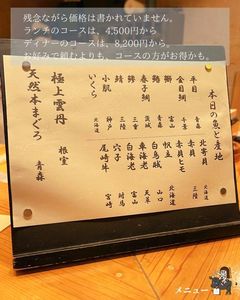 残念ながら価格は書かれていません。
ランチのコースは、4,500円から
ディナーのコースは、8,200円から。
お好みで頼むよりも、コースの方がお得かも。
本日の魚と産地
平目 青森
金目鯛 千葉
鰤 富山
春子鯛
鯖
鯵 三陸
小肌
いくら 北海道
北寄貝 北海道
赤貝
帆立 北海道
白烏賊 山口
車海老 天草
白海老 富山
穴子 対馬
尾崎牛 宮崎
極上雲丹 根室
天然本まぐろ 青森
メニュー